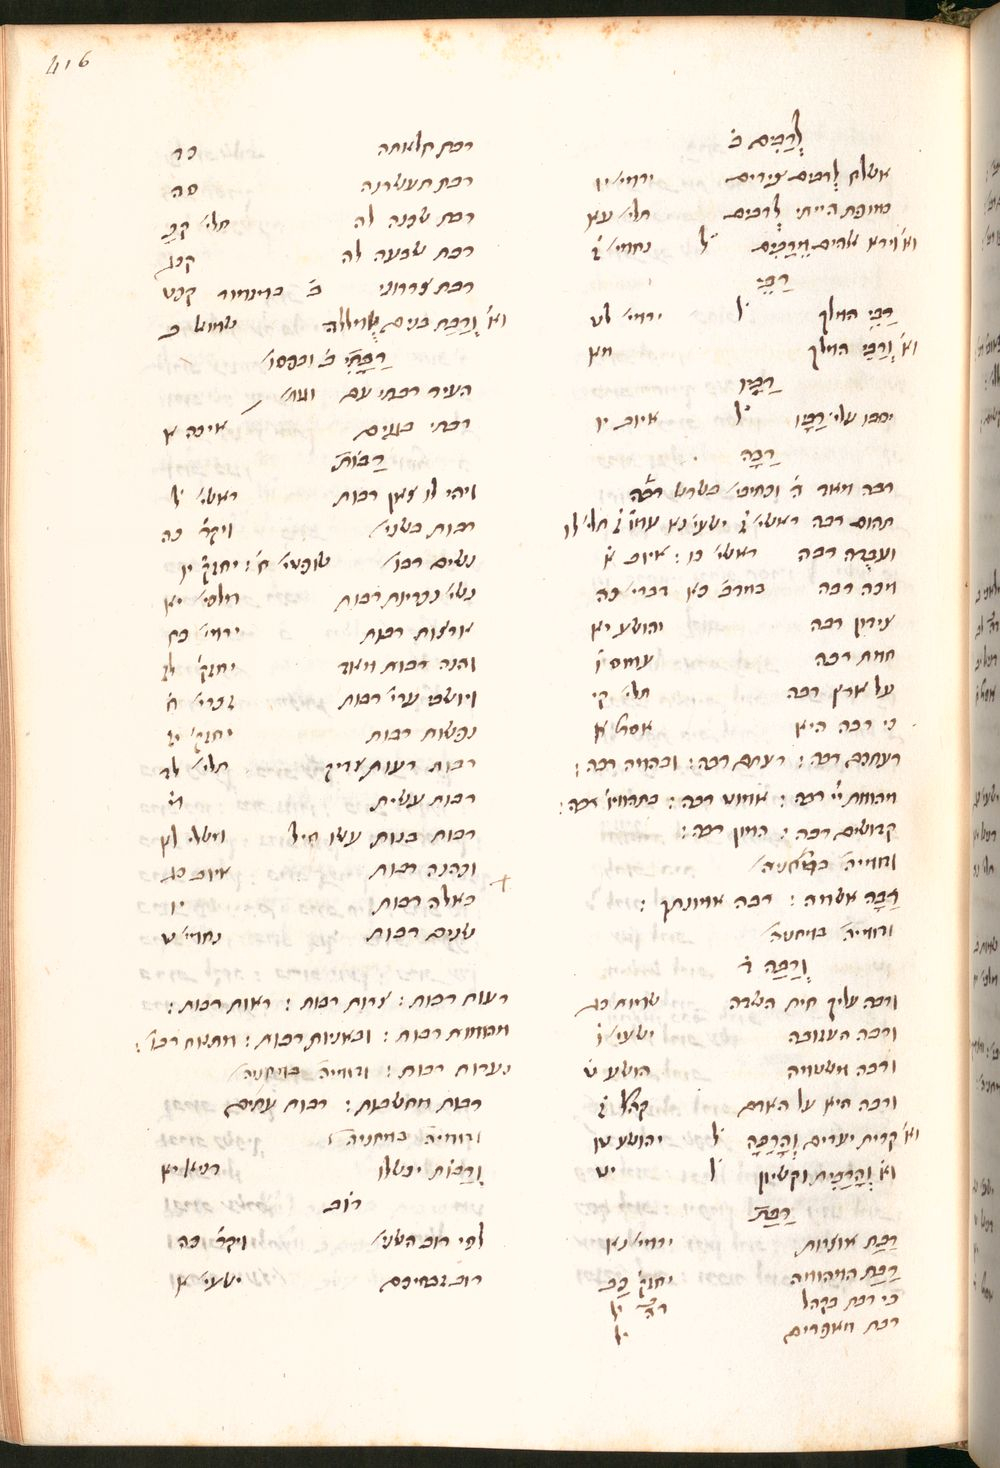 416
לְרַבִּים ב׳
אשלח לרבים צידים ירמי׳ יו
כמופת הייתי לְרבים תלי׳ עא
וא׳ וירא אלהים מֵרַבִּים ל׳ נחמי׳ ז׳
רַבֵּי
רַבֵּי המלך ל׳ ירמי׳ לט
וא׳ וְרַבֵּי המלך מא
רַבָּיו
יסבו עלי׳ רַבָּיו ל׳ איוב יו
רַבָּה
רבה מאד ה׳ וכתיב׳ בשרש רבה
תהום רבה ראשי׳ ז׳ ישעי׳ נא עמו׳ ז׳ תלי׳ לו
ועבֻדה רבה ראשי׳ כו : איוב א׳
מכה רבה במדב׳ כא דברי׳ כה
צידון רבה יהושע יא
חמת רבה עמוס ו׳
על ארץ רבה תלי׳ קי
כי רבה היא אסת׳ א
רעתכם רבה : רעתם רבה : ובהמה רבה :
מהומת יי׳ רבה : אנוש רבה : בתרמי׳ רבה :
קדושים רבה : המון רבה :
רַבָּה אשמה : רבה אמונתך :
וְרַבָּה ד׳
ורבה עליך חית השדה שמות כג
ורבה העזובה ישעי׳ ו׳
ורבה משטמה הושע ט׳
ורבה היא על האדם קהל׳ ו׳
וא׳ קרית יערים וְהָרַבָּה ל׳ יהושע טו
וא׳ וְהָרַבִּית וקשיון ל׳ יט
רַבַּת
רַבַּת אוצרות ירמי׳ נא
רַבַּת המהומה יחזק׳ כב
כי רבת בקהל דה״ב ל׳
רבת מאפרים ל׳
רבת חלאתה כד
רבת תעשרנה סה
רבת שכנה לה תלי׳ קכ
רבת שבעה לה קכג
רבת צררוני ב׳ במזמור קכט
וא׳ וְרַבַּת בנים אֻמללה שמואל ב
רַבָּתִי ב׳ ובפסו׳
העיר רבתי עם
רבתי בגוים איכה א
רַבּוֹת
ויהי לו צאן רבות ראשי׳ ל׳
רבות בשני׳ ויקר׳ כה
נשים רבו׳ שופטי׳ ח׳ : יחזק׳ יו
נשי׳ נכריות רבות מלכי׳ יא
ארצות רבות ירמי׳ כח
והנה רבות מאד יחזק׳ לז
ויושבי ערי׳ רבות זכרי׳ ח׳
נפשות רבות יחזק׳ יז
רבות רעות צדיק תלי׳ לד
רבות עשית מ׳
רבות בנות עשו חיל משלי לא
וכהנה רבות איוב כג
כאלה רבות יו
שנים רבות נחמי׳ ט
רעות רבות : צרות רבות : ראות רבות :
מהומות רבות : ובאניות רבות : מתאות רבו׳ :
נערות רבות :
רבות מחשבות : רבות עתים
וְרַבּוֹת יכשלו דניאל יא
רוֹב
לפי רוב השני׳ ויקר׳ כה
רוב זבחיכם ישעי׳ א׳